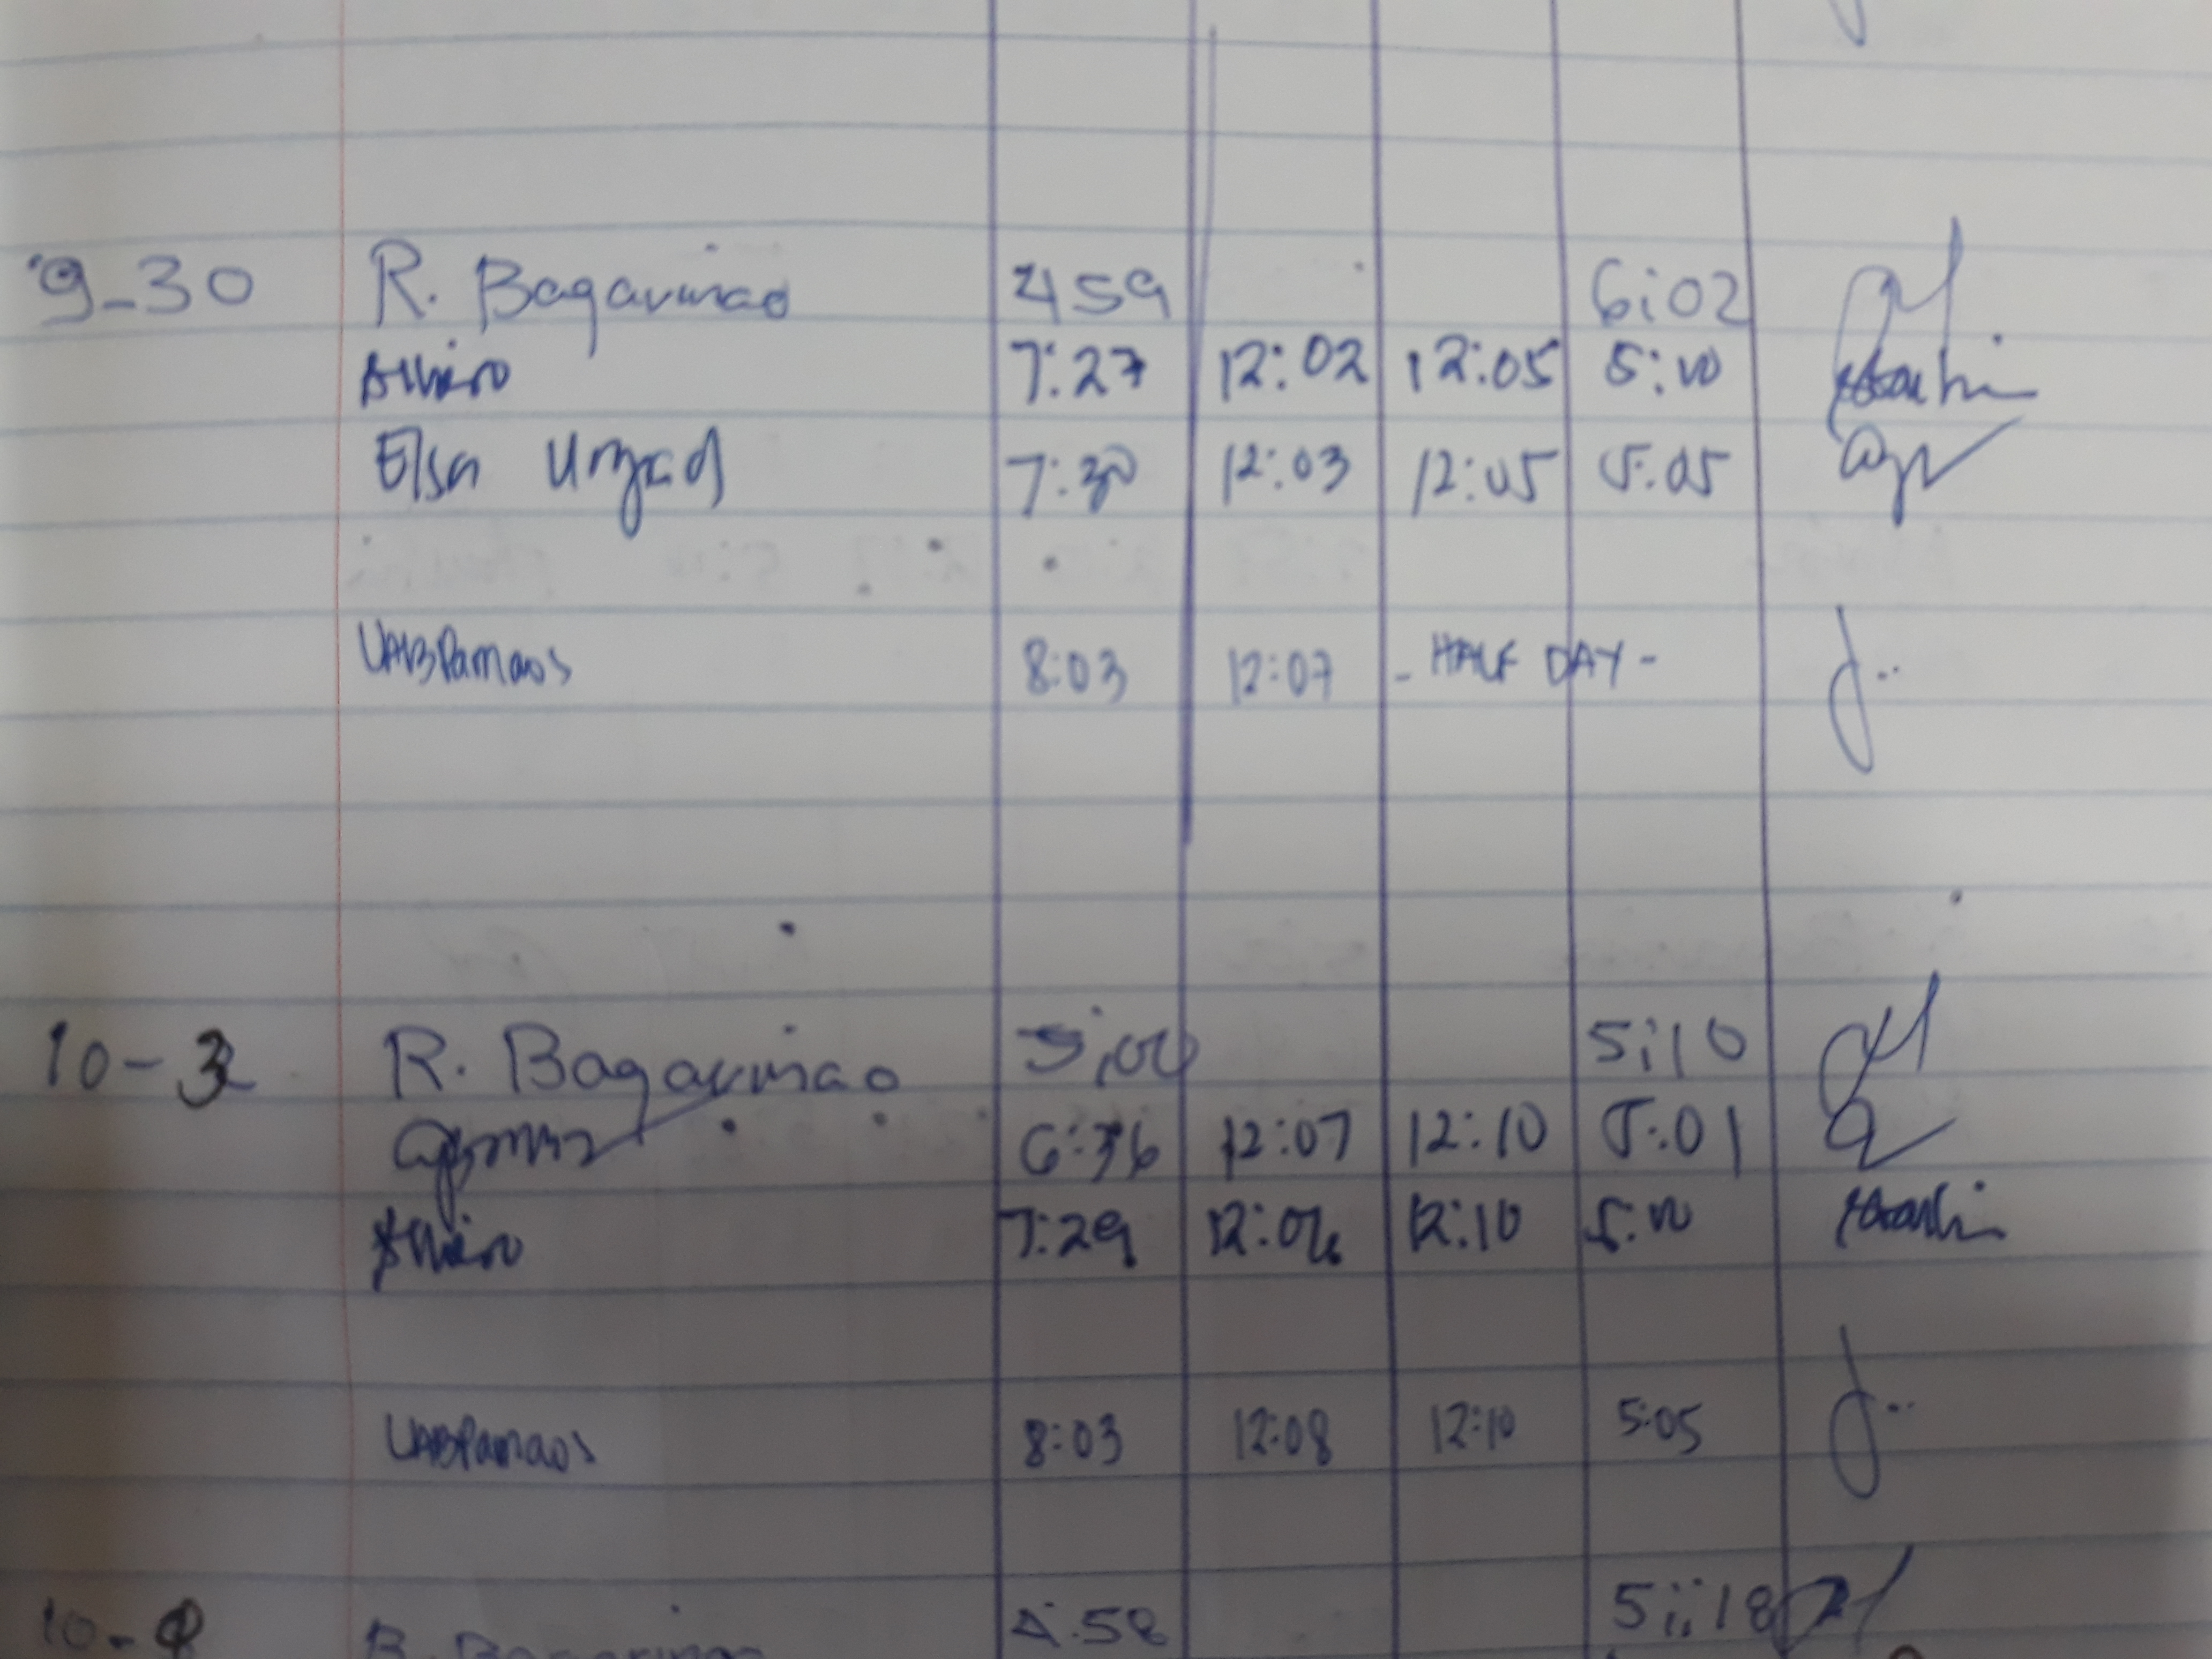 9-30 R. Bagavinao 4 59 6:02
7:27 12:02 12:05 5:10
Elsa 7:30 12:03 12:05 5:05
UABPamaos 8:03 12:07 - HALF DAY -
10-3 R. Bagavinao 5:00 5:10
6:36 12:07 12:10 5:01
7:29 12:06 12:10 5:10
UABPamaos 8:03 12:08 12:10 5:05
10- 4:58 5:18